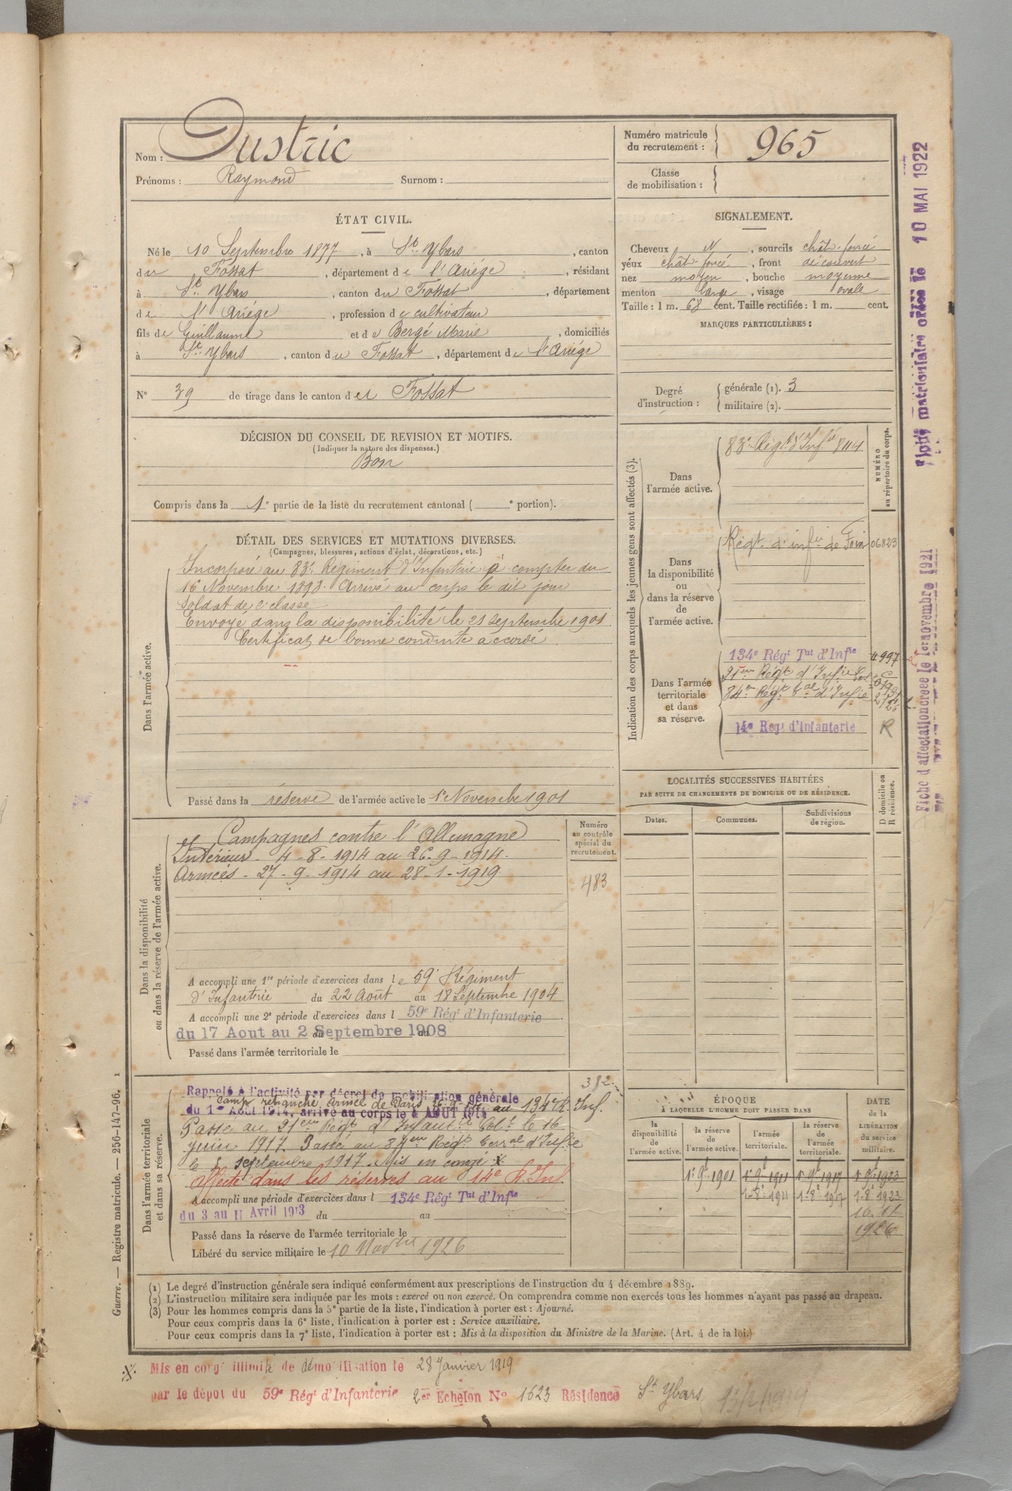 Nom : Dustric
Prénoms : Raymond Surnom :
Numéro matricule du recrutement : 965
Classe de mobilisation :
ÉTAT CIVIL.
Né le 10 Septembre 1877, à St Ybars, canton
du Fossat, département de l'Ariège, résidant
à St Ybars, canton du Fossat, département
de l'Ariège, profession de cultivateur
fils de Guillaume et de Bergé Marie, domiciliés
à St Ybars, canton du Fossat, département de l'Ariége
N° 39 de tirage dans le canton de Fossat
SIGNALEMENT.
Cheveux N, sourcils chât foncé
yeux chât foncé, front découvert
nez moyen, bouche moyenne
menton , visage ovale
Taille : 1 m. 68 cent. Taille rectifiée : 1 m. cent.
MARQUES PARTICULIÈRES :
Degré d'instruction : générale (1). 3
militaire (2).
DÉCISION DU CONSEIL DE REVISION ET MOTIFS.
(Indiquer la nature des dispenses.)
Bon
Compris dans la 1e partie de la liste du recrutement cantonal ( e portion).
DÉTAIL DES SERVICES ET MUTATIONS DIVERSES.
(Campagnes, blessures, actions d'éclat, décorations, etc.)
Dans l'armée active.
Incorporé au 83e Régiment d'Infanterie à compter du
16 Novembre 1898. Arrivé au corps le dit jour
Soldat de 2e classe
Envoyé dans la disponibilité le 21 Septembre 1901
Certificat de bonne conduite accordé
Passé dans la réserve de l'armée active le 1er Novembre 1901
Indication des corps auxquels les jeunes gens sont affectés (3).
NUMÉRO au répertoire du corps.
Dans l'armée active.
83e Régt d'Infie 8114
Dans la disponibilité ou dans la réserve de l'armée active.
Régt d'infie de Foix 06823
Dans l'armée territoriale et dans sa réserve.
134e Régt Tal d'Infie 4997
21em Régt d'Infie Col
84em Régt Tal d'Infie
14e Régt d'Infanterie R
LOCALITÉS SUCCESSIVES HABITÉES
PAR SUITE DE CHANGEMENTS DE DOMICILE OU DE RÉSIDENCE.
D domicile ou R résidence.
Dates. Communes. Subdivisions de région.
Dans la disponibilité ou dans la réserve de l'armée active.
Numéro au contrôle spécial du recrutement.
483
Campagnes contre l'Allemagne
Intérieur - 4-8-1914 au 26-9-1914-
Armées - 27-9-1914 au 28-1-1919
A accompli une 1re période d'exercices dans le 59e Régiment
d'Infanterie du 22 Août au 18 Septembre 1904
A accompli une 2e période d'exercices dans l 59e Régt d'Infanterie
du 17 Aout au 2 Septembre 1908
Passé dans l'armée territoriale le
Dans l'armée territoriale et dans sa réserve.
382
Rappelé à l'activité par décret de mobilisation générale
camp retranché de Paris
du 1er Août 1914, arrivé au corps le août 1914 au 134e R. Inf.
Passé au 21em Régt d'Infant. Colle le 16
juin 1917. Passé au 84em Régt Terral d'Infie
le septembre 1917. Mis en congé X
affecté dans les réserves au 14e R. Inf.
A accompli une période d'exercices dans l 134e Régt Tal d'Infie
du 3 au 11 Avril 1913 du au
Passé dans la réserve de l'armée territoriale le
Libéré du service militaire le 10 Novbre 1926
ÉPOQUE
À LAQUELLE L'HOMME DOIT PASSER DANS
la disponibilité de l'armée active.
la réserve de l'armée active.
l'armée territoriale.
la réserve de l'armée territoriale.
DATE de la LIBÉRATION du service militaire.
1926
(1) Le degré d'instruction générale sera indiqué conformément aux prescriptions de l'instruction du 4 décembre 1889.
(2) L'instruction militaire sera indiquée par les mots : exercé ou non exercé. On comprendra comme non exercés tous les hommes n'ayant pas passé au drapeau.
(3) Pour les hommes compris dans la 5e partie de la liste, l'indication à porter est : Ajourné.
Pour ceux compris dans la 6e liste, l'indication à porter est : Service auxiliaire.
Pour ceux compris dans la 7e liste, l'indication à porter est : Mis à la disposition du Ministre de la Marine. (Art. 4 de la loi.)
X Mis en congé illimité de démobilisation le 28 Janvier 1919
par le dépot du 59e Régt d'Infanterie 2er Echelon N° 1623 Résidence St Ybars
Guerre. — Registre matricule. — 256-147-96.
Fiche matriculaire créée le 10 MAI 1922
Fiche d'affectation créée le 1er novembre 1921